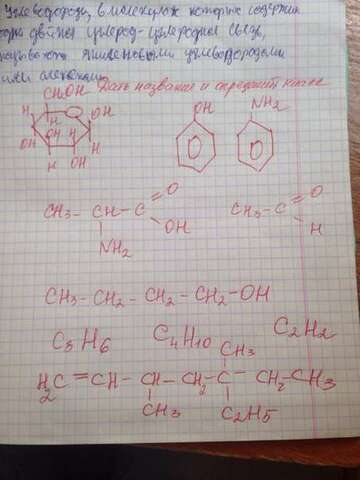 Углеводороды, в молекулах которых содержит
одна двойная углерод-углеродная связь,
называются этиленовыми углеводородами
или алкенами.
CH₂OH Дать название и определить класс
H H OH OH NH₂
H OH H
OH H
H OH
CH₃ - CH - C = O OH
NH₂
CH₃ - C = O H
CH₃ - CH₂ - CH₂ - CH₂ - OH
C₃H₆ C₄H₁₀ C₂H₂
CH₃
H₂C = CH - CH - CH₂ - C - CH₂ - CH₃
CH₃ C₂H₅